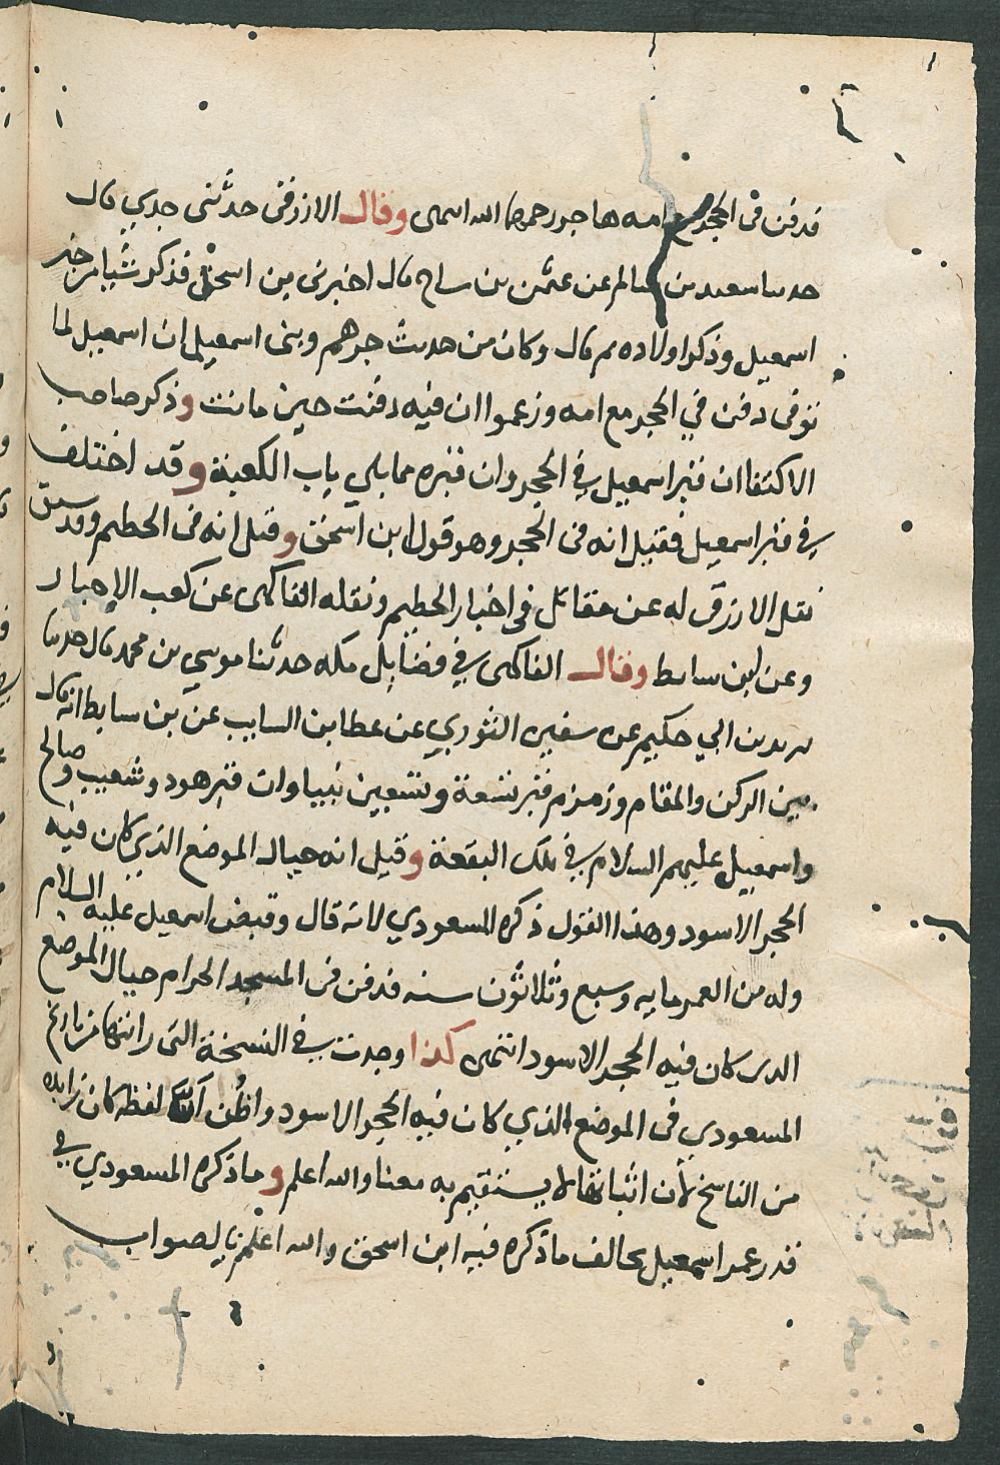 فدفن فى الحجر مع امه هاجر رحمهما الله انتهى وقال الازرقى حدثنى جدي قال
حدثنا سعيد بن سالم عن عثمن بن ساج قال اخبرنى بن اسحق فذكر شيا من خبر
اسمعيل وذكر اولاده ثم قال وكان من حديث جرهم وبنى اسمعيل ان اسمعيل لما
توفى دفن في الحجر مع امه وزعموا ان فيه دفنت حين ماتت وذكر صاحب
الاكتفا ان قبر اسمعيل في الحجر وان قبره مما يلي باب الكعبة وقد اختلف
في قبر اسمعيل فقيل انه فى الحجر وهو قول ابن اسحق وقيل انه فى الحطيم وقد سبق
نقل الازرقى له عن مقاتل فى اخبار الحطيم ونقله الفاكهى عن كعب الاحبار
وعن ابن سابط وقال الفاكهى في فضايل مكه حدثنا موسي بن محمد قال حدثنا
يزيد بن ابي حكيم عن سفين الثوري عن عطا بن السايب عن بن سابط انه قال
بين الركن والمقام وزمزم قبر تسعة وتسعين نبيا وان قبر هود وشعيب وصالح
واسمعيل عليهم السلام في تلك البقعة وقيل انه حيال الموضع الذي كان فيه
الحجر الاسود وهذا القول ذكره المسعودي لانه قال وقبض اسمعيل عليه السلام
وله من العمر مايه وسبع وثلاثون سنه فدفن فى المسجد الحرام حيال الموضع
الذى كان فيه الحجر الاسود انتهى كذا وجدت في النسخة التى رايتها من تاريخ
المسعودي فى الموضع الذي كان فيه الحجر الاسود واظن ان لفظه كان زايده
من الناسخ لان اثباتها لا يستقيم به معنا والله اعلم وما ذكره المسعودي في
قدر عمر اسمعيل يخالف ما ذكره فيه ابن اسحق والله اعلم بالصواب